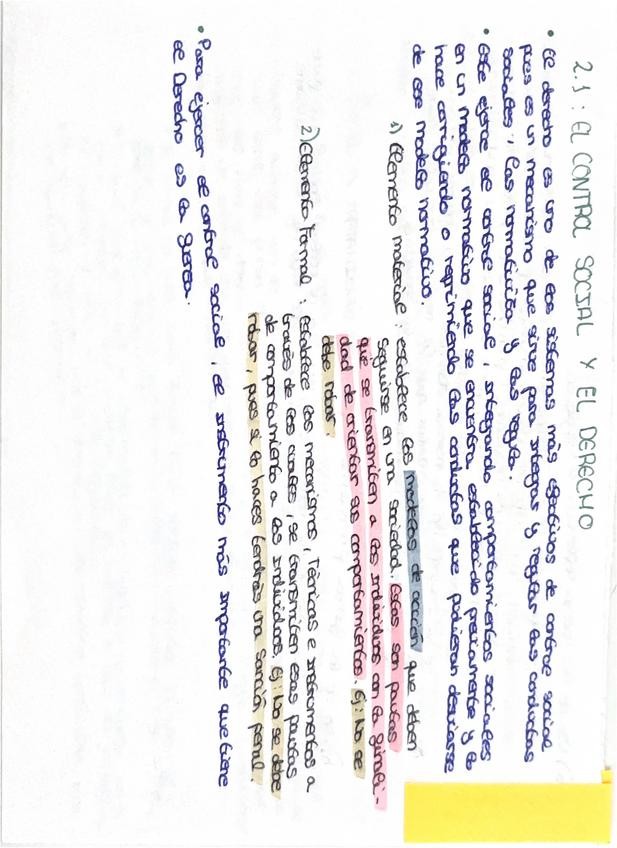 2.1: EL CONTROL SOCIAL Y EL DERECHO
• El derecho es uno de los sistemas más efectivos de control social
pues es un mecanismo que sirve para integrar y regular las conductas
sociales, las normativiza y las regula.
• Este ejerce el control social, integrando comportamientos sociales
en un modelo normativo que se encuentra establecido previamente y lo
hace corrigiendo o reprimiendo las conductas que pudieran desviarse
de ese modelo normativo.
1) Elemento material: establece los modelos de acción que deben
seguirse en una sociedad. Estas son pautas
que se transmiten a los individuos con la finali-
dad de orientar sus comportamientos. Ej: No se
debe robar.
2) Elemento Formal: establece los mecanismos, técnicas e instrumentos a
través de los cuales, se transmiten esas pautas
de comportamiento a los individuos. Ej: No se debe
robar, pues si lo haces tendrás una sanción penal.
• Para ejercer el control social, el instrumento más importante que tiene
el Derecho es la fuerza.